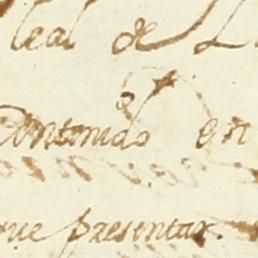 leal de L
Antonido en
que presentar.